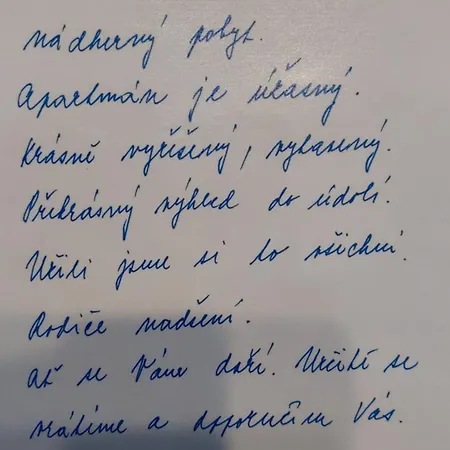 nádherný pobyt.
Apartmán je úžasný.
Krásně vyřešený, vybavený.
Překrásný výhled do údolí.
Užili jsme si to všichni.
Rodiče nadšení.
Ať se Vám daří. Určitě se
vrátíme a doporučím Vás.